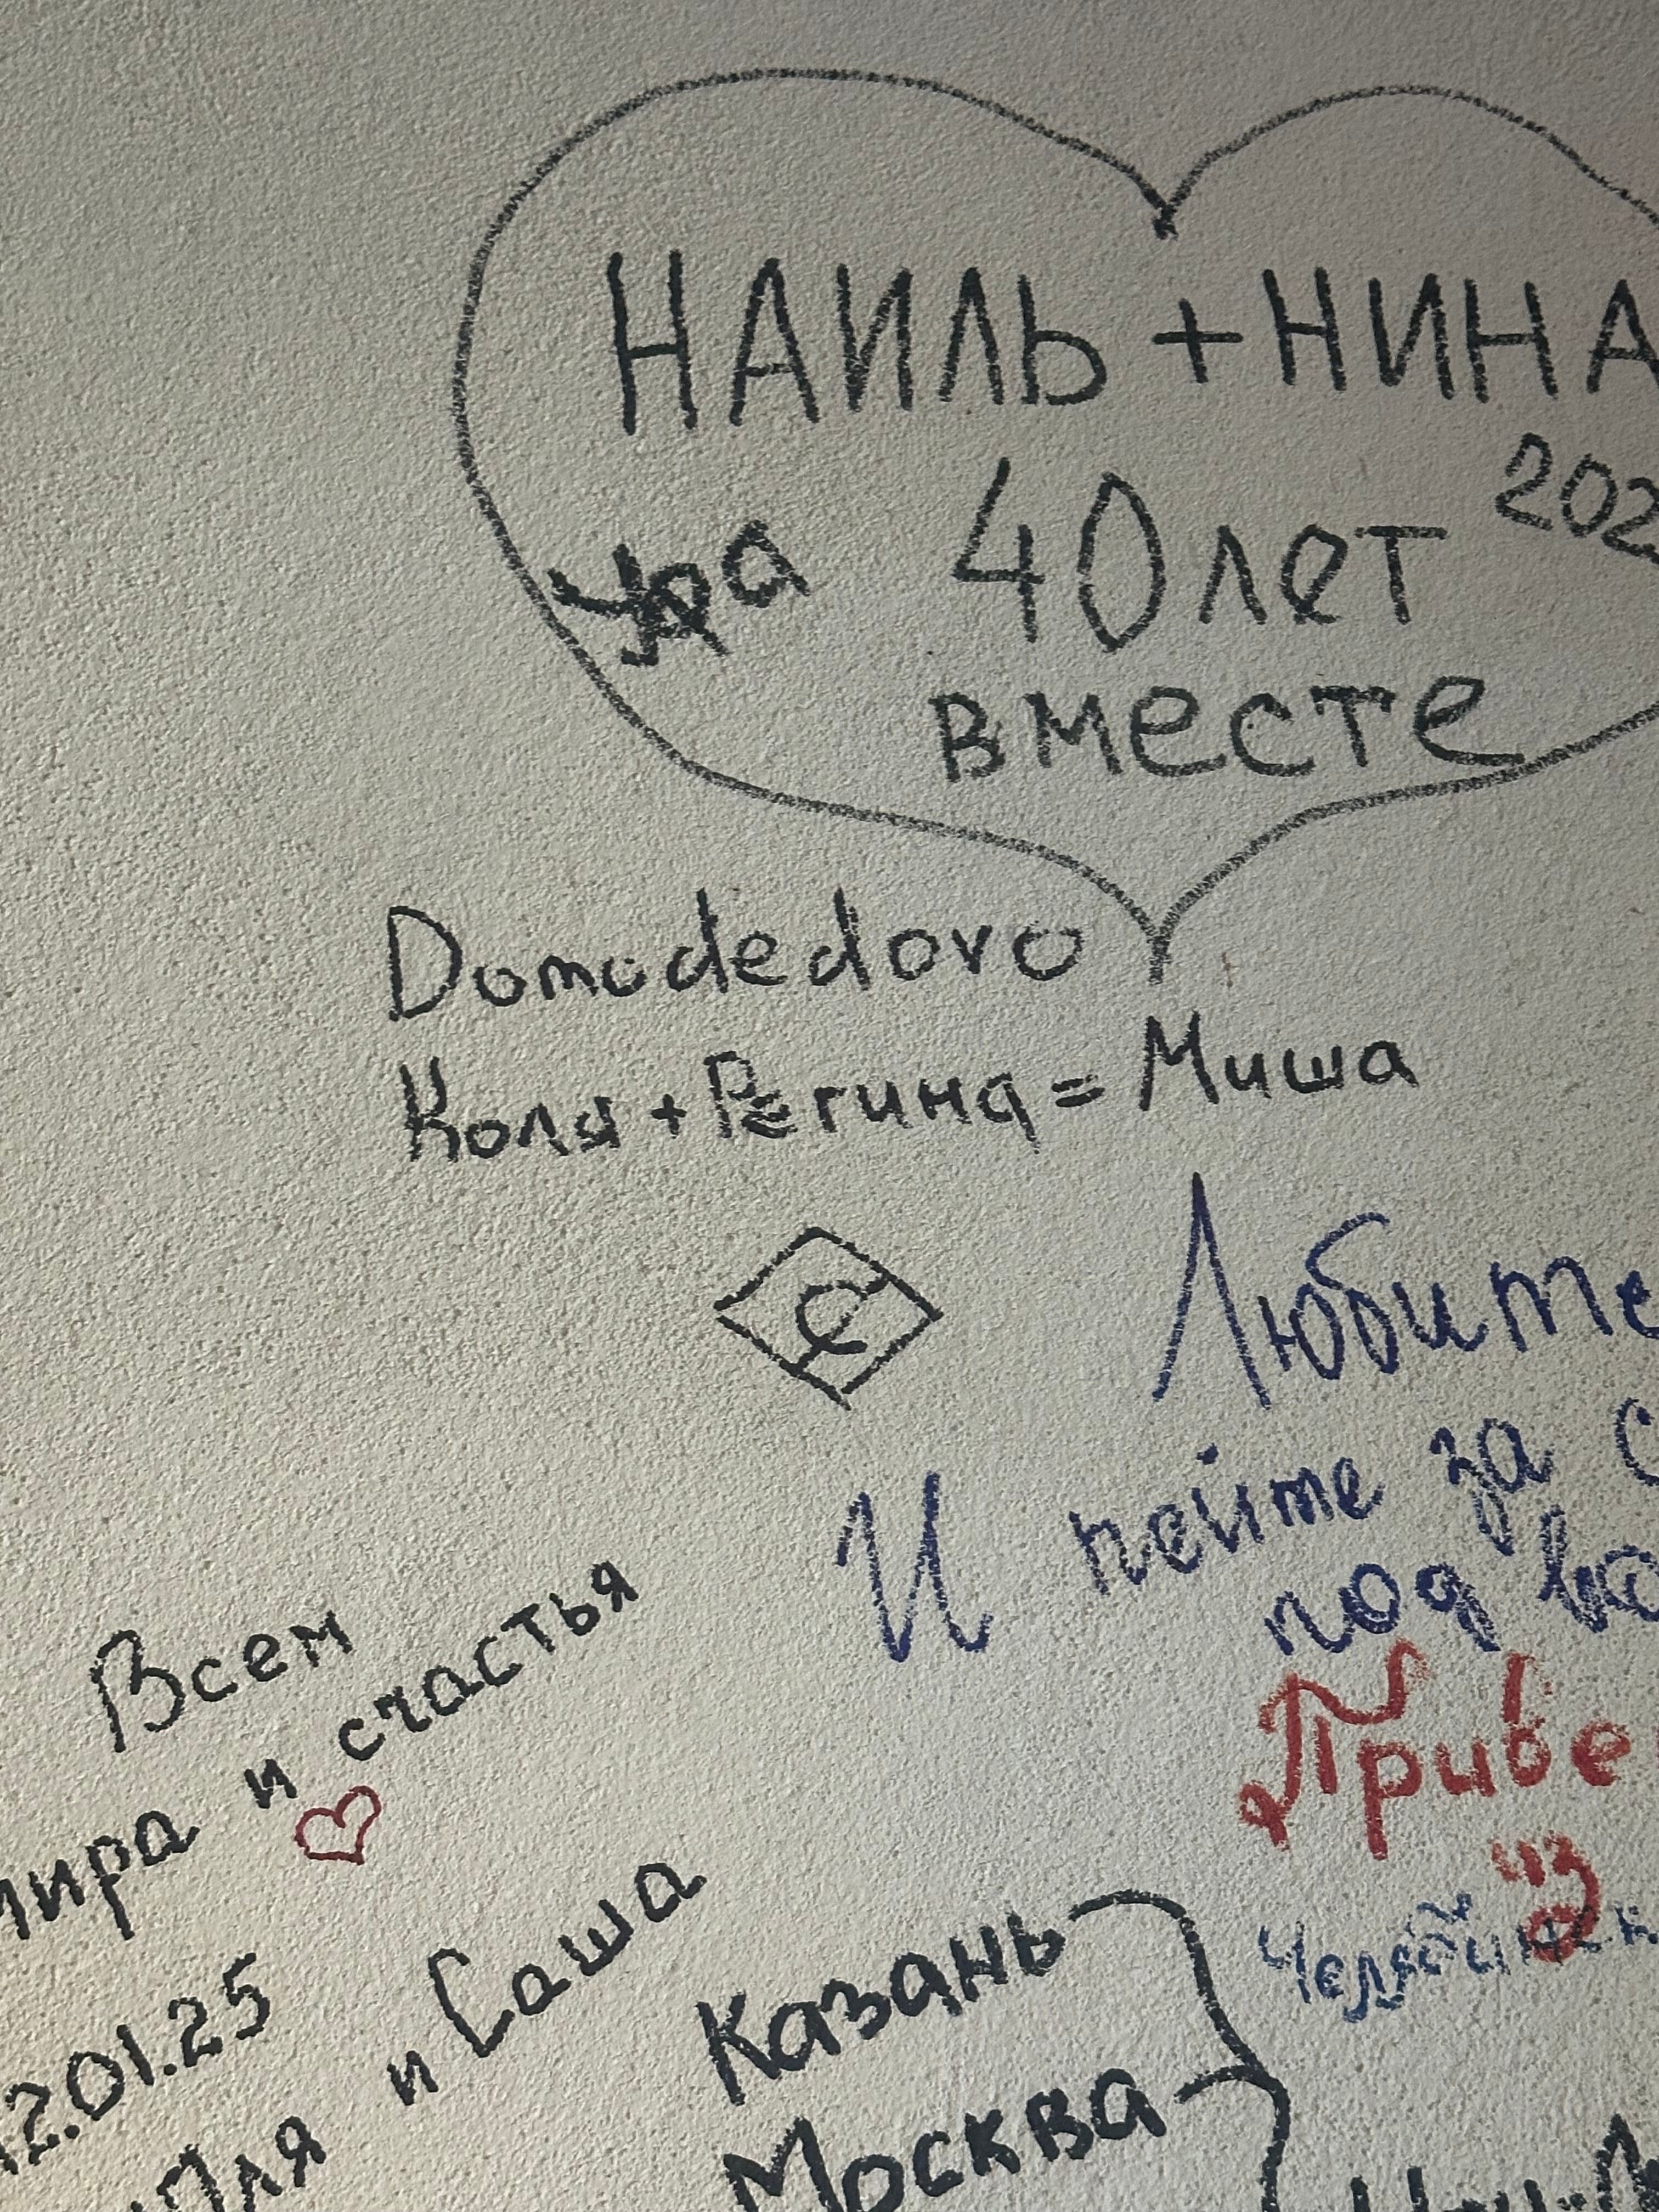 НАИЛЬ + НИНА
202
ура 40 лет
вместе
Domodedovo
Коля + Регина = Миша
С
Любите
И пейте за С
под во
Всем
мира и счастья
Приве
из
Челябинск
2.01.25
и Саша
Казань
Москва